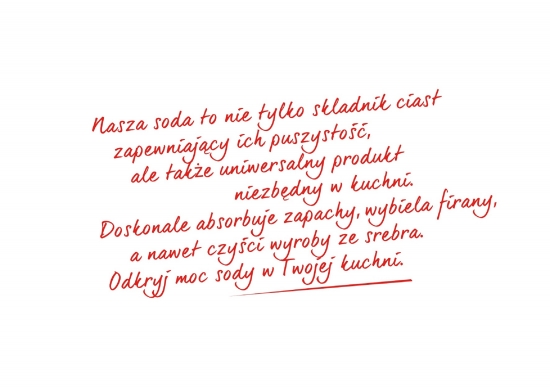 Nasza soda to nie tylko składnik ciast
zapewniający ich puszystość,
ale także uniwersalny produkt
niezbędny w kuchni.
Doskonale absorbuje zapachy, wybiela firany,
a nawet czyści wyroby ze srebra.
Odkryj moc sody w Twojej kuchni.